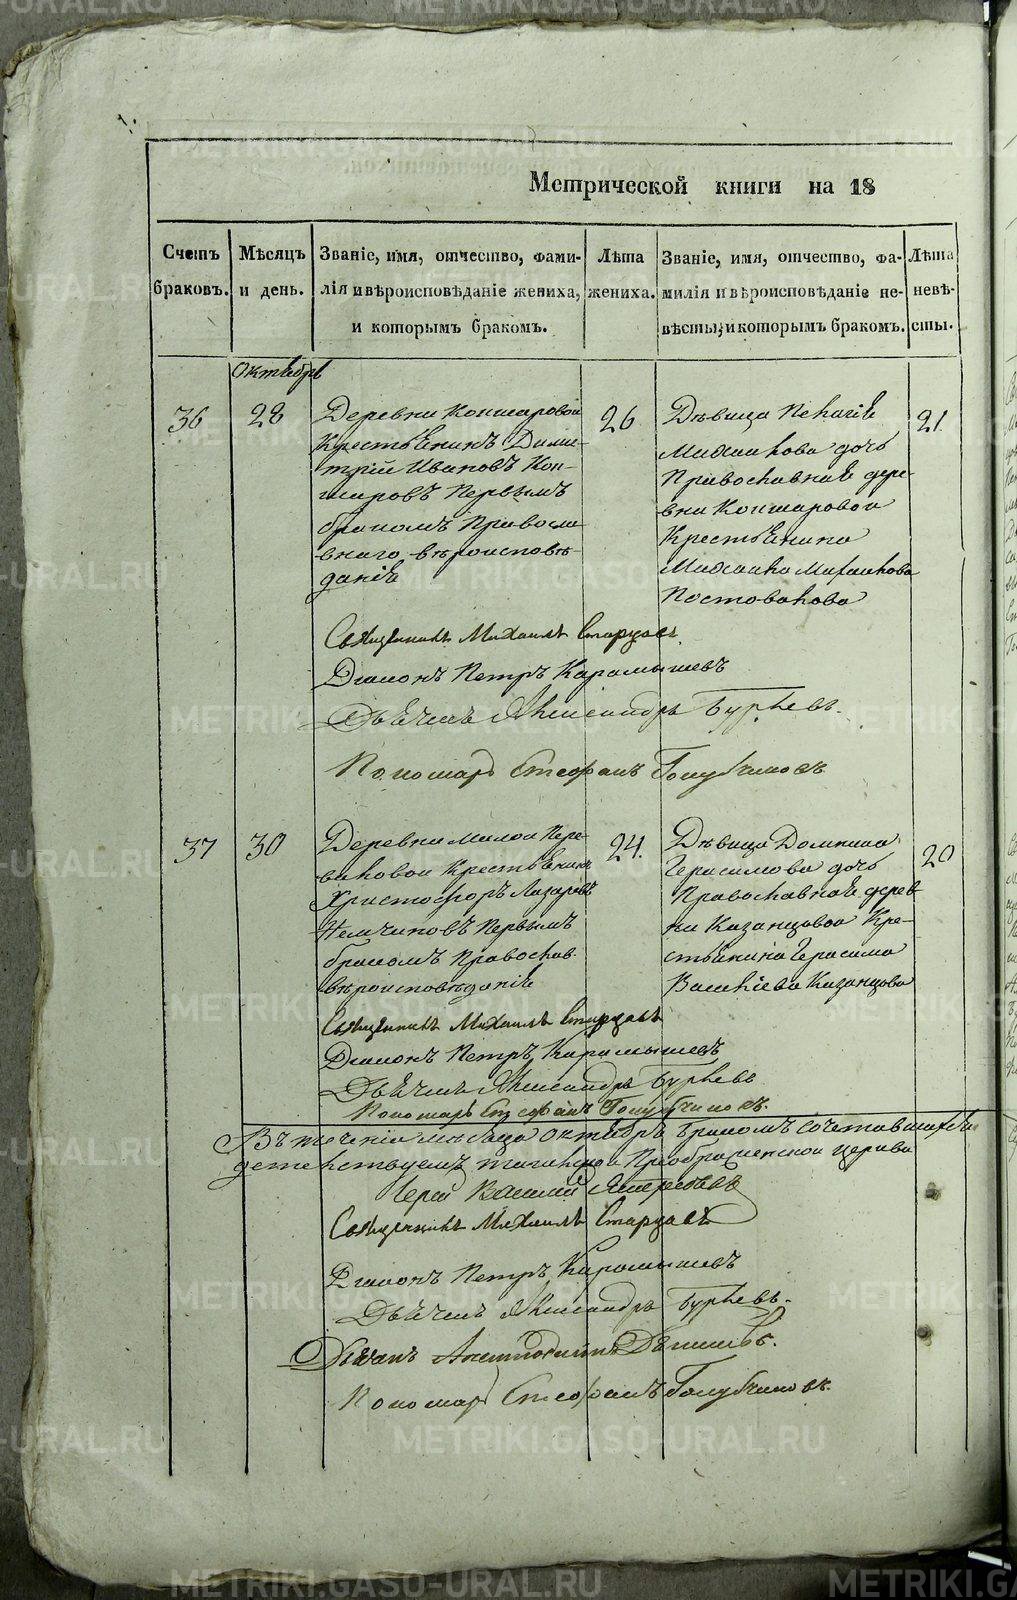 METRIKI.GASO-URAL.RU
Метрической книги на 18
Счетъ браковъ.
Мѣсяцъ и день.
Званіе, имя, отчество, фами-
лія и вѣроисповѣданіе жениха,
и которымъ бракомъ.
Лѣта жениха.
Званіе, имя, отчество, фа-
милія и вѣроисповѣданіе не-
вѣсты, и которымъ бракомъ.
Лѣта невѣ-
сты.
Октябрь
36
28
Деревни Коншаровой
Крестьянинъ Дими-
трій Ивановъ Кон-
шаровъ Первымъ
бракомъ Правосла
внаго вѣроисповѣ-
данія
26
Дѣвица Пелагія
Михаилова дочь
Православная дере-
вни Коншаровой
Крестьянина
Михаила Михаилова
Постовалова
21
Священникъ Михаилъ Старцовъ.
Діаконъ Петръ Карамышевъ
Дьячекъ Александръ Бурцевъ.
Пономарь Стефанъ Голубчиковъ
37
30
Деревни Малой Пере-
валовой Крестьянинъ
Христофоръ Лазаревъ
Немчиновъ Первымъ
бракомъ Православ.
вѣроисповѣданія
24.
Дѣвица Домника
Герасимова дочь
Православная дерев-
ни Казанцовой Кре-
стьянина Герасима
Васильева Казанцова
20
Священникъ Михаилъ Старцовъ
Діаконъ Петръ Карамышевъ
Дьячекъ Александръ Бурцевъ
Пономарь Стефанъ Голубчиковъ.
Въ теченіи мѣсяца Октября бракомъ сочетавшихся
детельствуемъ Преображенской церкви
Іерей Василій
Священникъ Михаилъ Старцовъ
Діаконъ Петръ Карамышевъ
Дьячекъ Александръ Бурцевъ.
Пономарь Стефанъ Голубчиковъ.